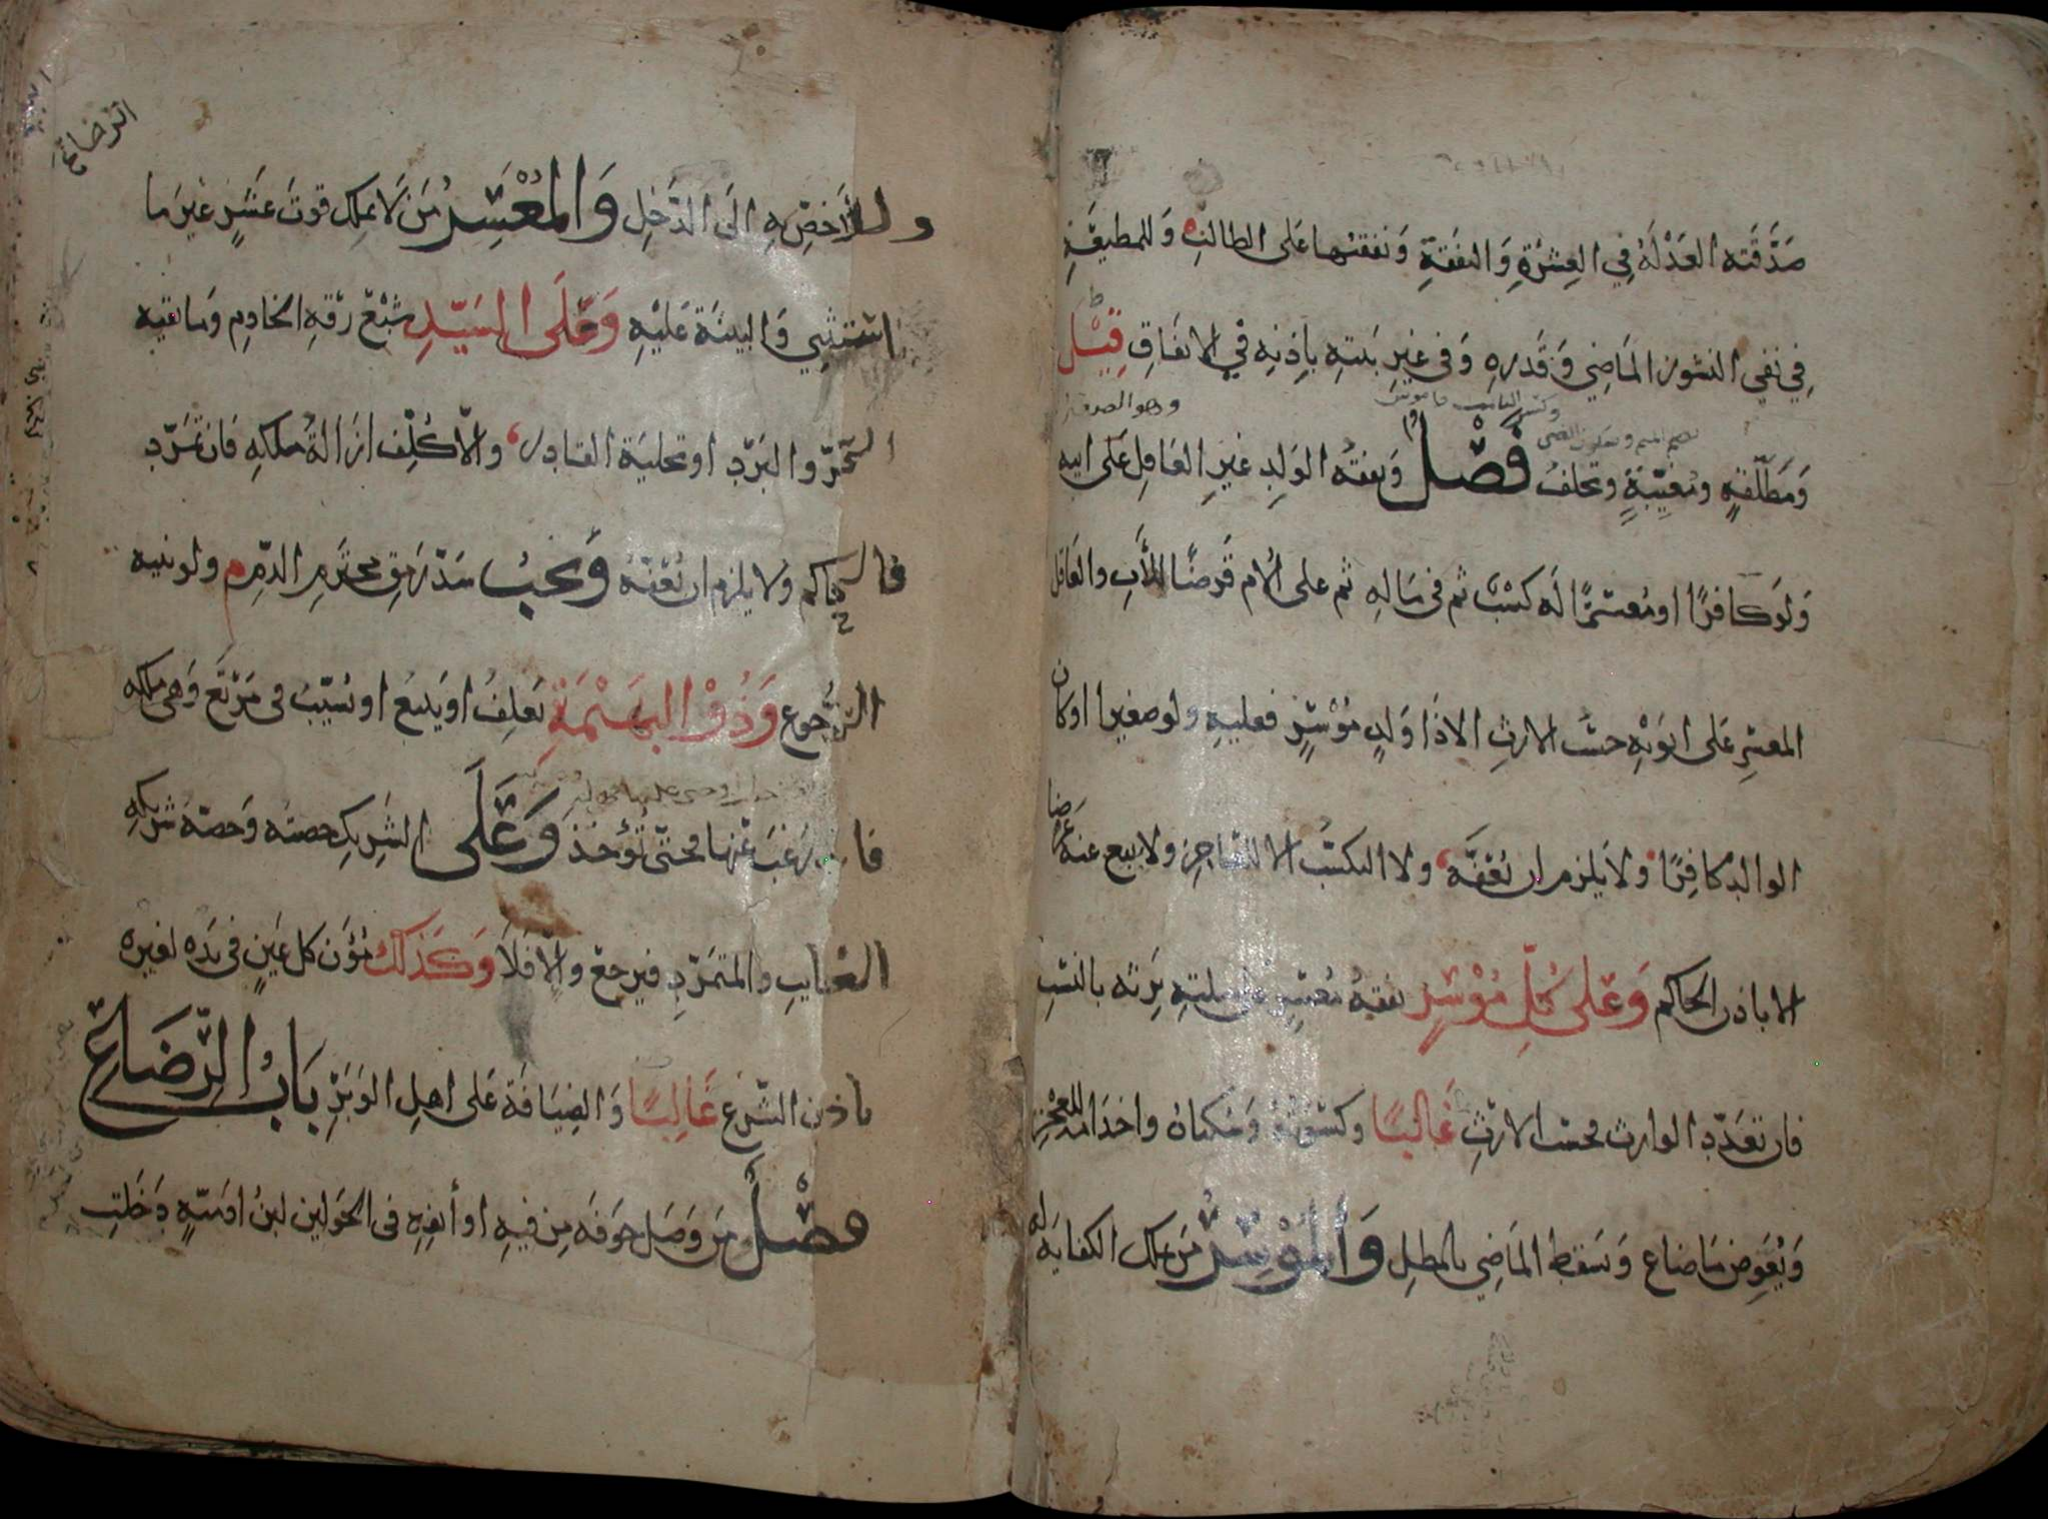 صدقته العدلة في العشرة والنفقة ونفقتها على الطالب وللمطيعة
في نفي النشوز الماضي وقدره وفي غير بيته باذنه في الانفاق قيل
ومطلقة ومغيبة وتحلف فصل ونفقة الولد غير العاقل على ابيه
ولو كافرا او معسرا له كسب ثم في ماله ثم على الام قرضا للاب والعاقل
المعسر على ابويه حسب الارث الا ذا ولد موسر فعليه ولو صغيرا او كان
الوالد كافرا ولا يلزم ان نعفه ولا التكسب الا للعاجز ولا يبيع عنه عرضا
الا باذن الحاكم وعلى كل موسر نفقة معسر على ملته يرثه بالنسب
فان تعدد الوارث فحسب الارث غالبا وكسوته وسكناه واخدامه للعجز
ويعوض ما ضاع وسقط الماضي بالمطل والموسر من يملك الكفاية له
الرضاع
وللاخص به الى الدخل والمعسر من لا يملك قوت عشر غير ما
استثني والبينة عليه وعلى السيد شبع رقه الخادم وما تقيه
الحر والبرد او تخلية القادر والا كلف ازالة ملكه فان تمرد
فالحاكم ولا يلزم ان نعفه ويجب سد رمق محترم الدم ولو بنية
الرجوع وذو البهيمة يعلف او يبيع او يسيب في مرتع وهي ملكه
فان رغب عنها فحتى تؤخذ وعلى الشريك حصته وحصة شريكه
الغايب والمتمرد فيرجع والا فلا وكذلك مؤن كل عين في يده لغيره
باذن الشرع غالبا والضيافة على اهل الوبر باب الرضاع
فصل ومن وصل جوفه من فيه او أنفه في الحولين لبن ادمية دخلت